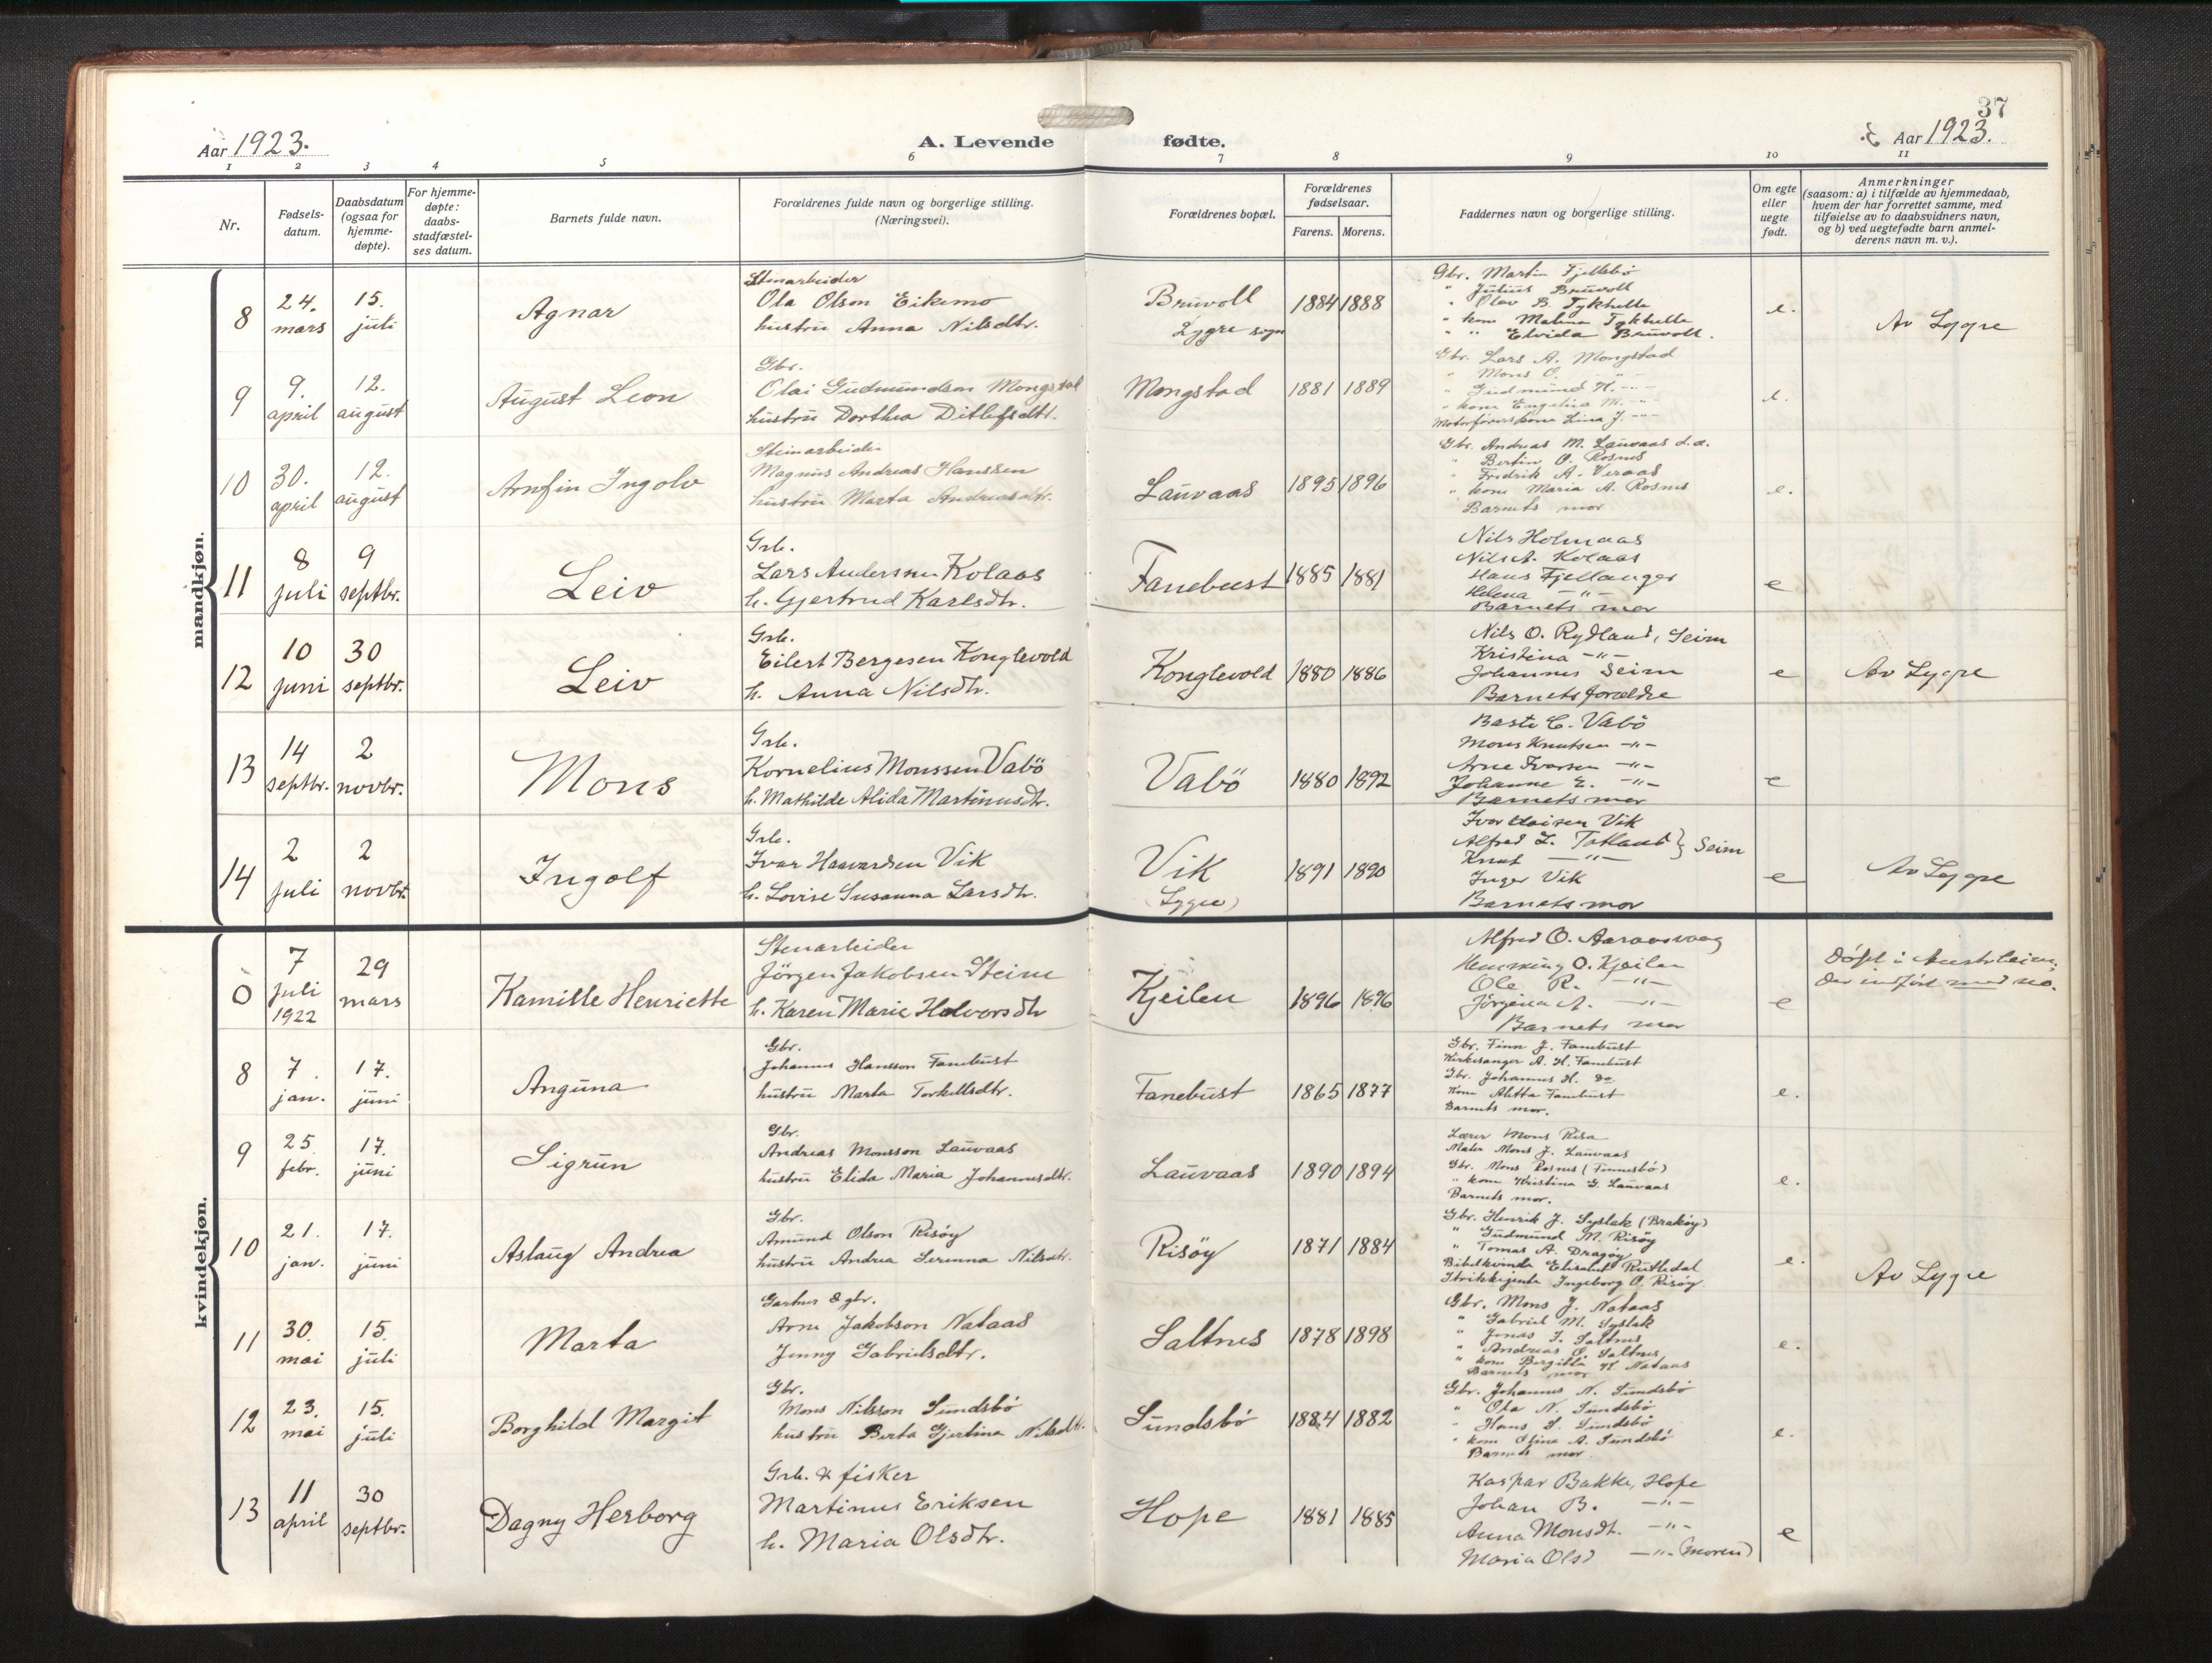 37
Aar 1923.
A. Levende fødte.
Aar 1923.
1 2 3 4 5 6 7 8 9 10 11
Nr.
Fødsels-
datum.
Daabsdatum
(ogsaa for
hjemme-
døpte).
For hjemme-
døpte:
daabs-
stadfæstel-
ses datum.
Barnets fulde navn.
Forældrenes fulde navn og borgerlige stilling.
(Næringsvei).
Forældrenes bopæl.
Forældrenes
fødselsaar.
Farens. Morens.
Faddernes navn og borgerlige stilling.
Om egte
eller
uegte
født.
Anmerkninger
(saasom: a) i tilfælde av hjemmedaab,
hvem der har forrettet samme, med
tilføielse av to daabsvidners navn,
og b) ved uegtefødte barn anmel-
derens navn m. v.).
mandkjøn.
8
24.
mars
15.
juli
Agnar
Stenarbeider
Ola Olson Eikemo
hustru Anna Nilsdtr.
Bruvoll
Lygre sogn
1884 1888
Gbr. Martin Fjellsbö
" Julius Bruvoll
" Olav B. Tykhelle
" kone Malena Tykhelle
" " Elvida Bruvoll.
e.
Av Lygre
9
9.
april
12.
august
August Leon
Gbr.
Olai Gudmundson Mongstad
hustru Dorthea Ditlefsdtr.
Mongstad
1881 1889
Gbr. Lars A. Mongstad
" Mons O. -"-
" Gudmund H. -"-
" kone Engelina M. -"-
Motorförers kone Lina J. -"-
e.
10
30.
april
12.
august
Arnfin Ingolv
Steinarbeider
Magnus Andreas Hanssen
hustru Marta Andreasdtr.
Lauvaas
1895 1896
Gbr. Andreas M. Lauvaas d.æ.
" Bertin O. Rosnes
" Fredrik A. Veraas
" kone Maria A. Rosnes
Barnets mor
e.
11
8
juli
9
septbr.
Leiv
Grb.
Lars Andersen Kolaas
h. Gjertrud Karlsdtr.
Fanebust
1885 1881
Nils Holmaas
Nils A. Kolaas
Hans Fjellanger
Helena -"-
Barnets mor
e
12
10
juni
30
septbr.
Leiv
Grb.
Eilert Bergesen Konglevold
h. Anna Nilsdtr.
Konglevold
1880 1886
Nils O. Rydland, Seim
Kristina -"-
Johannes Seim
Barnets forældre
e
Av Lygre
13
14
septbr.
2
novbr.
Mons
Grb.
Kornelius Monssen Vabö
h. Mathilde Alida Martinusdtr.
Vabö
1880 1892
Baste C. Vabö
Mons Knutsen -"-
Arne Ivarsen -"-
Johanne E. -"-
Barnets mor
e
14
2
juli
2
novbr.
Ingolf
Grb.
Ivar Haavardsen Vik
h. Lovise Susanna Larsdtr.
Vik
(Lygre)
1891 1890
Ivar Vik
Alfred L. Totland } Seim
Knut -"-
Inger Vik
Barnets mor
e
Av Lygre
kvindekjøn.
0
7
juli
1922
29
mars
Kamille Henriette
Stenarbeider
Jörgen Jakobsen Steine
h. Karen Marie Halvorsdtr
Kjeilen
1896 1896
Alfred O. Aaraasvaag
Henning O. Kjeilen
Ole R. -"-
Jörgina A. -"-
Barnets mor
e
Döpt i Austrheim,
der indfört med no.
8
7.
jan.
17.
juni
Anguna
Gbr.
Johannes Hansson Fanebust
hustru Marta Torkellsdtr.
Fanebust
1865 1877
Gbr. Finn J. Fanebust
Kirkesanger A. H. Fanebust
Gbr. Johannes H. do.
Kone Alitta Fanebust
Barnets mor.
e.
9
25
febr.
17.
juni
Sigrun
Gbr.
Andreas Monsson Lauvaas
hustru Elida Maria Johannesdtr.
Lauvaas
1890 1894
Lærer Mons Risa
Maler Mons J. Lauvaas
Gbr. Mons Rosnes (Finnesbö)
" kone Kristina G. Lauvaas
Barnets mor.
e.
10
21.
jan.
17.
juni
Aslaug Andrea
Gbr.
Amund Olson Risöy
hustru Andrea Serinna Nilsdtr.
Risöy
1871 1884
Gbr. Henrik J. Syslak (Braköy)
" Gudmund M. Risöy
" Tomas A. Dragöy
Bibelkvinde Elisabet Rutledal
Strikkejente Ingeborg O. Risöy.
e.
Av Lygre
11
30.
mai
15.
juli
Marta
Gartner & gbr.
Arne Jakobson Nataas
Jenny Gabrielsdtr.
Saltnes
1878 1898
Gbr. Mons J. Nataas
" Gabriel M. Syslak
" Jonas I. Saltnes
" Andreas O. Saltnes
" kone Bergitta H Nataas
Barnets mor
e.
12
23.
mai
15.
juli
Borghild Margit
Gbr.
Mons Nilsson Sundsbö
hustru Berta Gjertina Nilsdtr.
Sundsbö
1884 1882
Gbr. Johannes N. Sundsbö
" Ola N. Sundsbö
" Hans S. Sundsbö
" kone Olina A. Sundsbö
Barnets mor.
e.
13
11
april
30
septbr.
Dagny Herborg
Grb. & fisker
Martinus Eriksen
h. Maria Olsdtr.
Hope
1881 1885
Kaspar Bakke, Hope
Johan B. -"-
Anna Monsdtr. -"-
Maria Olsd -"- (moren)
e